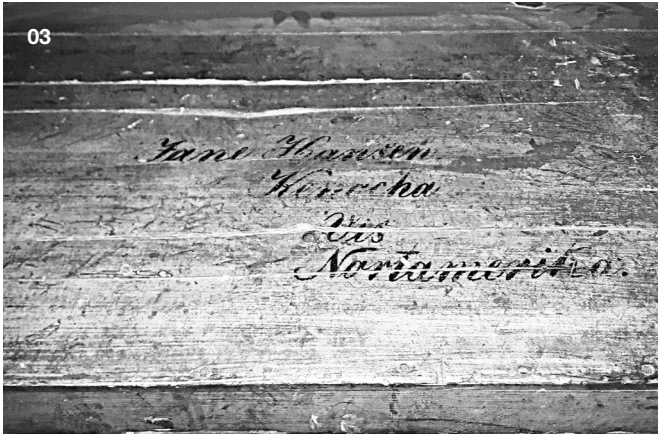 03
Jane Hansen
Kenocha
Wis
Nortamerika.